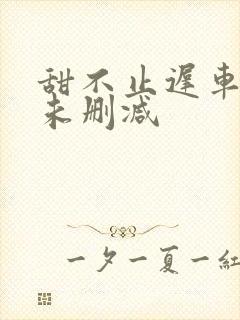 甜不止遲車
未删減
一夕一夏一紅